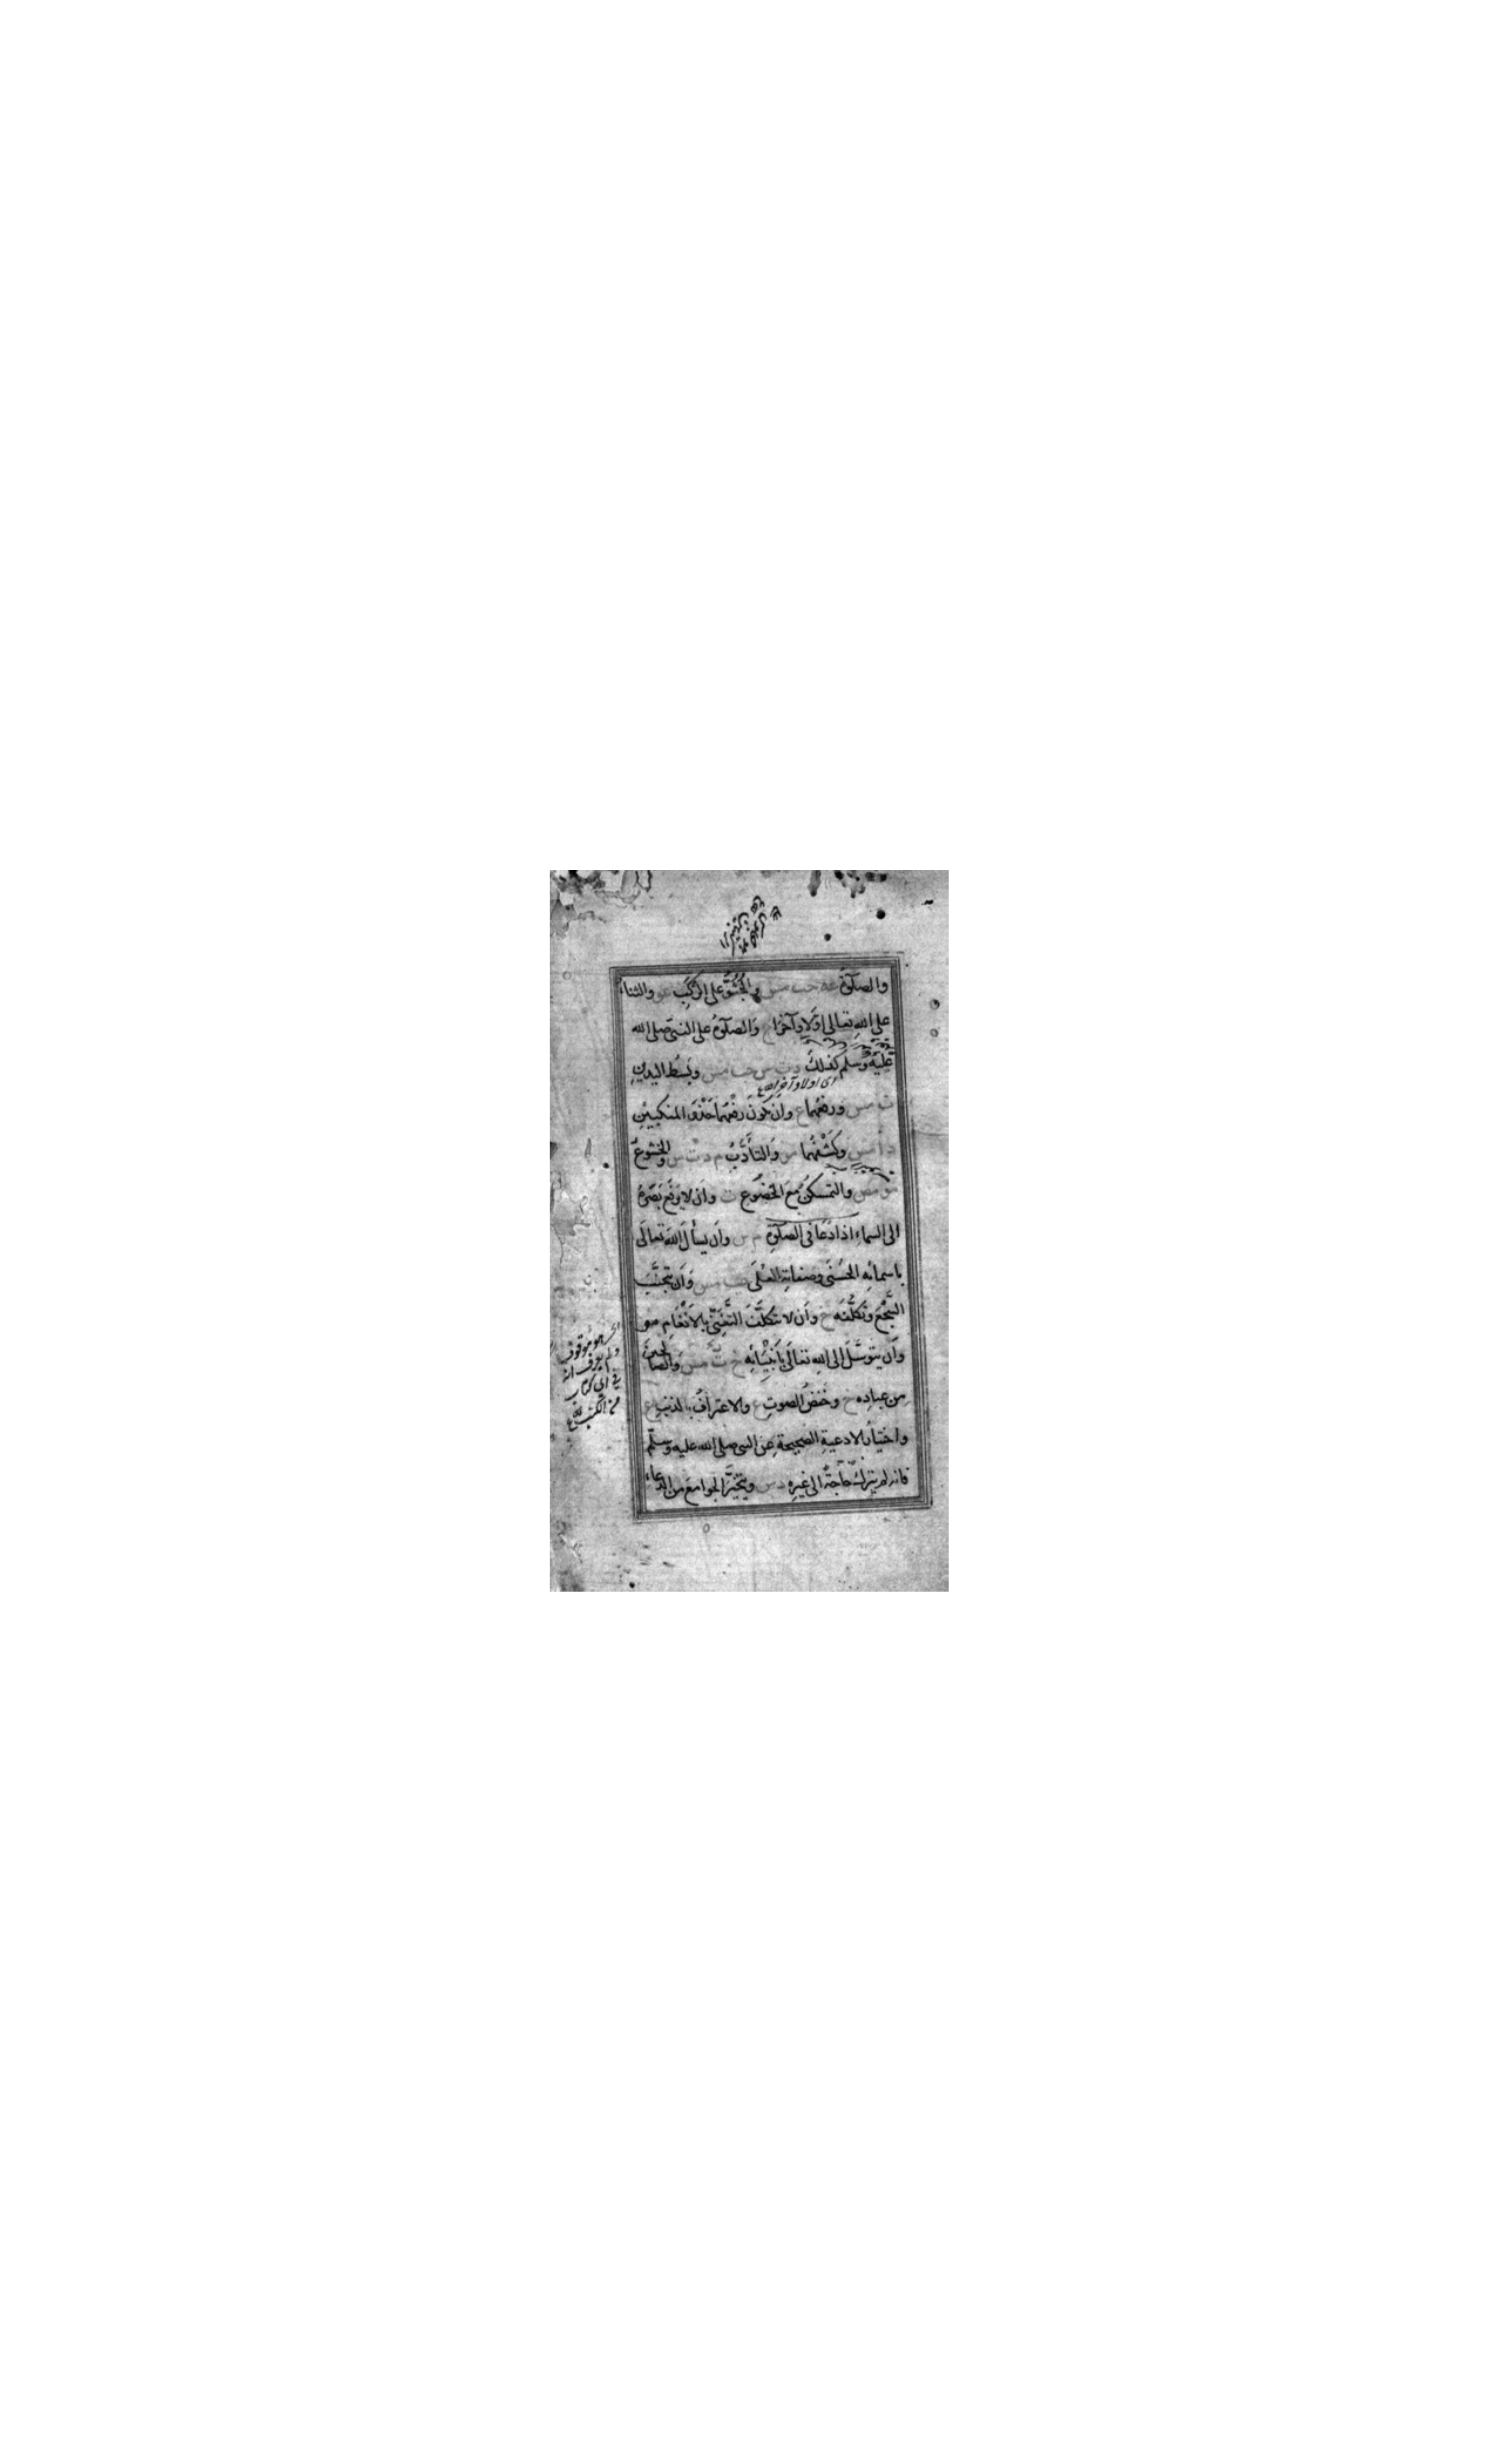 والصلوة عه حب مس والجثو على الركب عو والثناء
على الله تعالى اولا وآخرا ع والصلوة على النبى صلى الله
عليه وسلم كذلك د ت س حب مس وبسط اليدين
اى اولا وآخرا
ت مس ورفعهما ع وان يكون رفعهما حذو المنكبين
د ا مس وكشفهما مس والتأدب م د ت س والخشوع
مو مص والتمسكن مع الخضوع ت وان لا يرفع بصره
الى السماء اذا دعا فى الصلوة م س وان يسأل الله تعالى
باسمائه الحسنى وصفاته العلى حب مس وان يتجنب
السجع وتكلفه خ وان لا يتكلف التغنى بالانغام مو
وان يتوسل الى الله تعالى بانبيائه خ ر مس والصالحين
من عباده خ وخفض الصوت ع والاعتراف بالذنب ع
واختيار الادعية الصحيحة عن النبى صلى الله عليه وسلم
فانه لم يترك حاجة الى غيره د س ويتخير الجوامع من الدعاء
هو موقوف
ولم يعرف انه
فى اى كتاب
من الكتب